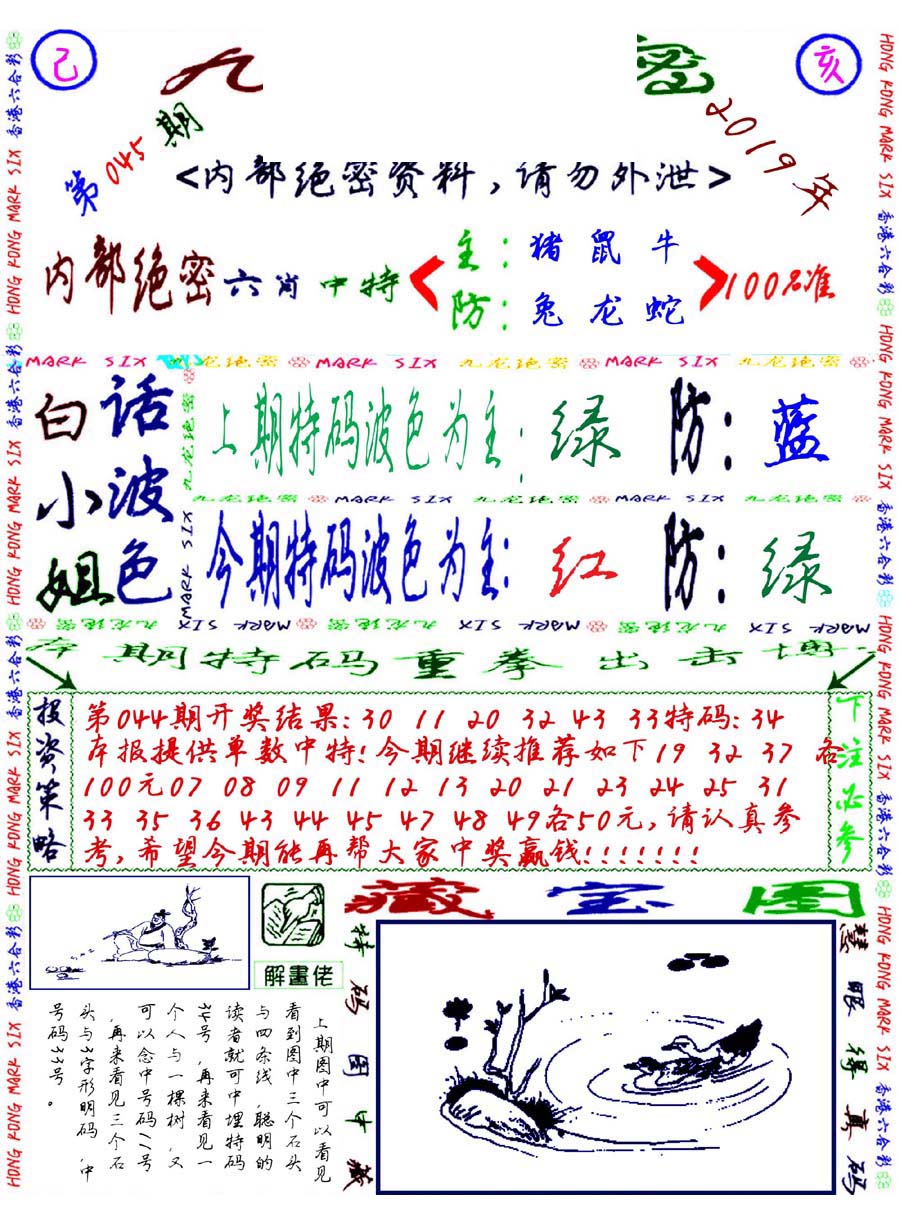 己
九
密
亥
第045期
2019年
<内部绝密资料，请勿外泄>
内部绝密六肖中特
主：猪 鼠 牛
防：兔 龙 蛇
100%准
MARK SIX 九龙绝密 MARK SIX 九龙绝密 MARK SIX 九龙绝密
白小姐
话波色
上期特码波色为主：绿 防：蓝
九龙绝密 MARK SIX 九龙绝密 MARK SIX 九龙绝密
今期特码波色为主：红 防：绿
九龙绝密 MARK SIX
九龙绝密 MARK SIX 九龙绝密 MARK SIX 九龙绝密 MARK SIX
本期特码重拳出击博
投资策略
第044期开奖结果：30 11 20 32 43 33特码：34
本报提供单数中特！今期继续推荐如下19 32 37 各
100元07 08 09 11 12 13 20 21 23 24 25 31
33 35 36 43 44 45 47 48 49各50元，请认真参
考，希望今期能再帮大家中奖赢钱！！！！！！！
下注必参
藏宝图
解畫佬
上期图中可以看见
看到图中三个石头
与四条线，聪明的
读者就可中埋特码
34号，再来看见一
个人与一棵树，又
可以念中号码11号
，再来看见三个石
头与3字形明码，中
号码33号。
特码图中藏
慧眼得真码
香港六合彩 HONG KONG MARK SIX 香港六合彩 HONG KONG MARK SIX 香港六合彩 HONG KONG MARK SIX 香港六合彩 HONG KONG MARK SIX
HONG KONG MARK SIX 香港六合彩 HONG KONG MARK SIX 香港六合彩 HONG KONG MARK SIX 香港六合彩 HONG KONG MARK SIX 香港六合彩